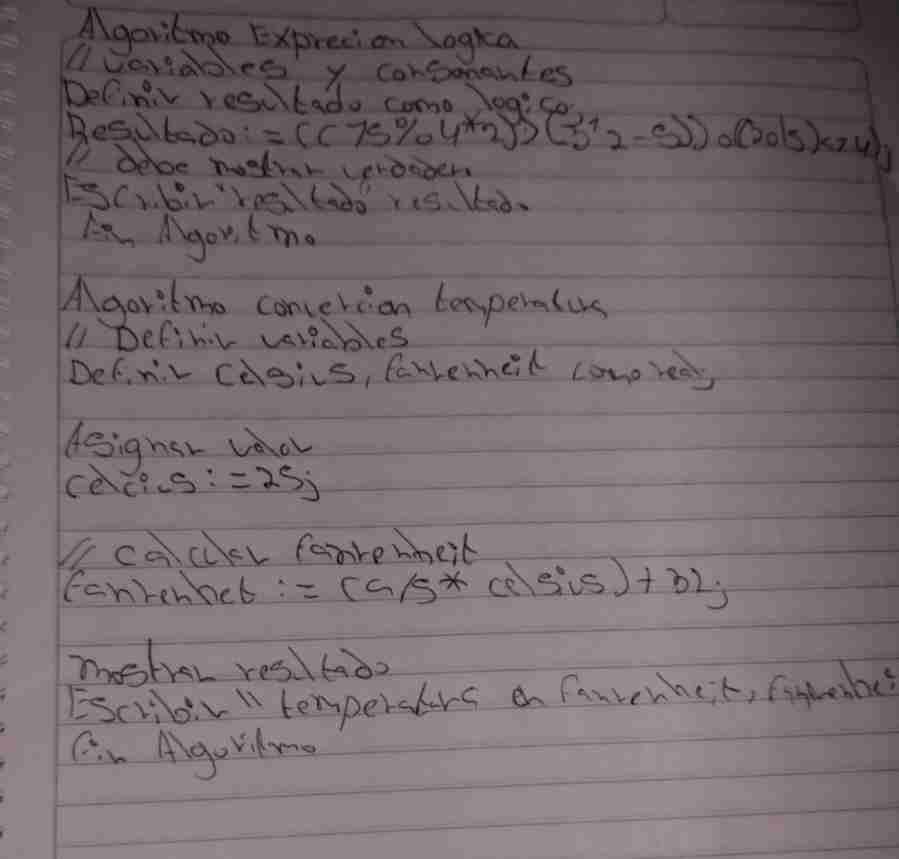 Algoritmo Exprecion logica
// variables y consonantes
Definir resultado como logico
Resultado:=((75%4*2)>(3^2-5))o(20(5)<>4);
// debe mostrar verdadero
Escribir "resultado" resultado
Fin Algoritmo
Algoritmo convercion temperatura
// Definir variables
Definir Celsius, fahrenheit como real;
Asignar valor
celcius:=25;
// calcular fahrenheit
fahrenheit := (9/5* celsius)+32;
mostrar resultado
Escribir" temperatura en fahrenheit, fahrenhei
Fin Algoritmo